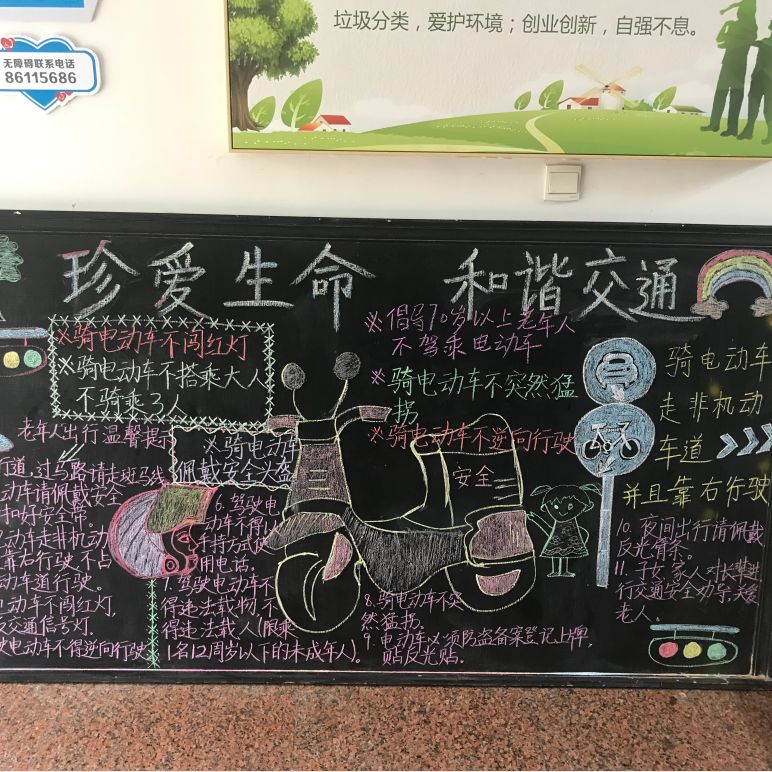 垃圾分类，爱护环境；创业创新，自强不息。
无障碍联系电话
86115686
珍爱生命 和谐交通
※骑电动车不闯红灯
※骑电动车不搭乘大人
不骑乘3人
※骑电动车
佩戴安全头盔
※倡导70岁以上老年人
不驾乘电动车
※骑电动车不突然猛
拐
※骑电动车不逆向行驶
安全
骑电动车
走非机动
车道
并且靠右行驶
老年人出行温馨提示
行道,过马路请走斑马线
动车请佩戴安全
和好安全带。
动车走非机动
靠右行驶,不占
动车道行驶。
动车不闯红灯,
交通信号灯.
驶电动车不得逆向行驶
6.驾驶电
动车不得以
手持方式使
用电话。
7.驾驶电动车不
得违法载物,不
得违法载人(限乘
1名12周岁以下的未成年人).
8.骑电动车不突
然猛拐.
9.电动车必须防盗备案登记上牌,
贴反光贴.
10.夜间出行请佩戴
反光背条。
11.子女、家人对长辈进
行交通安全劝导,关爱
老人.